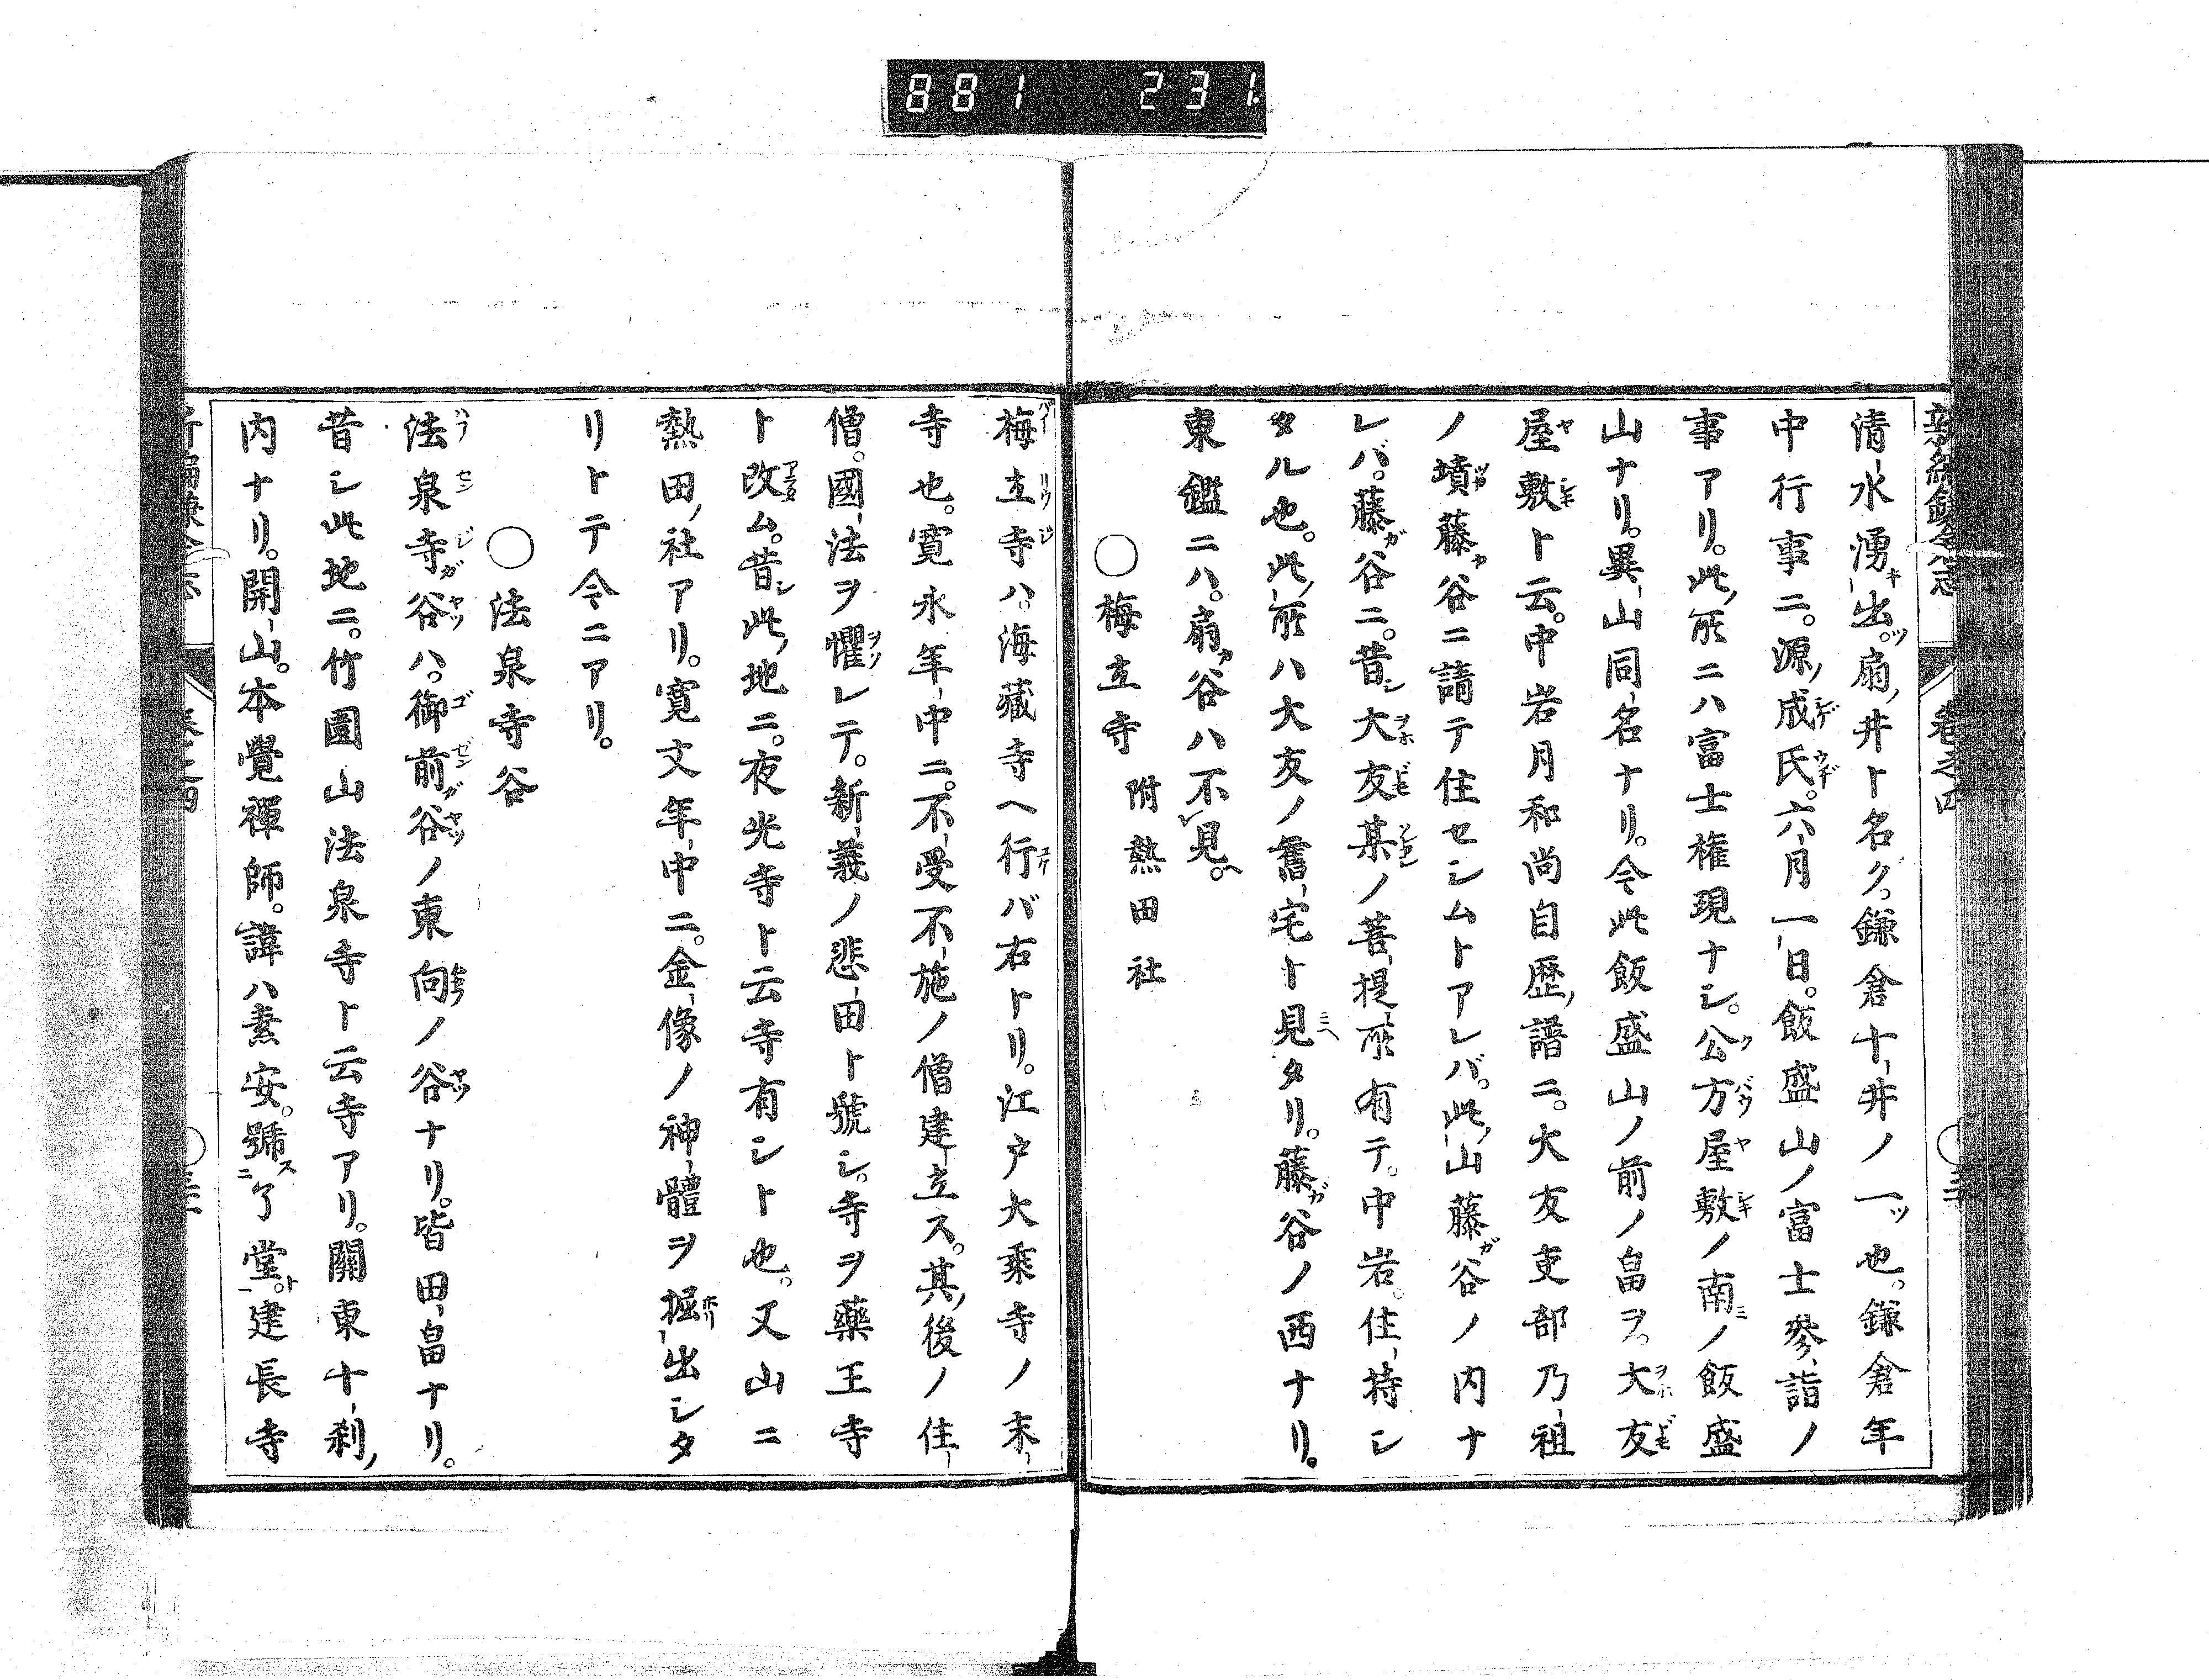 881 231.
新編鎌倉志 卷之四
清水湧出。扇井ト名ク。鎌倉十井ノ一ツ也。鎌倉年
中行事ニ。源成氏。六月一日。飯盛山ノ富士參詣ノ
事アリ。此所ニハ富士権現ナシ。公方屋敷ノ南ノ飯盛
山ナリ。異山同名ナリ。今此飯盛山ノ前ノ畠ヲ。大友
屋敷ト云。中岩月和尚自歴譜ニ。大友吏部乃祖
ノ墳藤谷ニ請テ住セシムトアレバ。此山藤谷ノ内ナ
レバ。藤谷ニ。昔シ大友某ノ菩提所有テ。中岩。住持シ
タル也。此所ハ大友ノ舊宅ト見タリ。藤谷ノ西ナリ。
東鑑ニハ。扇谷ハ不見。
○梅立寺 附熱田社
梅立寺ハ。海藏寺ヘ行バ右トリ。江戸大乘寺ノ末
寺也。寛永年中ニ。不受不施ノ僧建立ス。其後ノ住
僧。國法ヲ懼レテ。新義ノ悲田ト號シ。寺ヲ藥王寺
ト改ム。昔シ此地ニ。夜光寺ト云寺有シト也。又山ニ
熱田社アリ。寛文年中ニ。金像ノ神體ヲ掘出シタ
リトテ今ニアリ。
○法泉寺谷
法泉寺谷ハ。御前谷ノ東向ノ谷ナリ。皆田畠ナリ。
昔シ此地ニ。竹園山法泉寺ト云寺アリ。關東十刹ノ
内ナリ。開山。本覺禪師。諱ハ素安。號ス了堂ト。建長寺